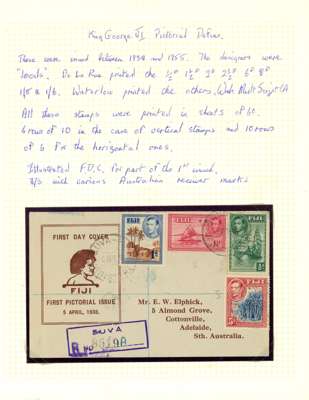 King George VI Pictorial Defins.
These were issued between 1938 and 1955. The designers were
"locals". De La Rue printed the ½d 1½d 2d 2½d 6d 8d
1/5 & 1/6. Waterlow printed the others, Wmk Mult Script CA
All these stamps were printed in sheets of 60.
6 rows of 10 in the case of vertical stamps and 10 rows
of 6 for the horizontal ones.
Illustrated F.D.C. for part of the 1st issued.
B/S with various Australian receiver marks
FIRST DAY COVER
FIJI
FIRST PICTORIAL ISSUE
5 APRIL, 1938.
FIJI
FIJI
FIJI
FIJI
Mr. E. W. Elphick,
5 Almond Grove,
Cottonville,
Adelaide,
Sth. Australia.
SUVA
R No